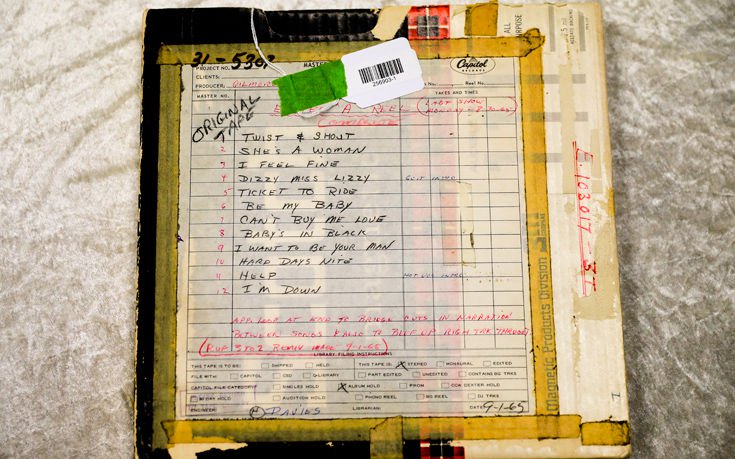 ALL
PURPOSE
31-5363
PROJECT NO.
MASTER
Capitol
RECORDS
CLIENT:
PRODUCER:
No. Reel No.
MASTER NO.
TAKES AND TIMES
256903-1
A REEL (LAST SHOW
MONDAY - 8-30-65)
ORIGINAL
TAPE
TWIST & SHOUT
2 SHE'S A WOMAN
3 I FEEL FINE
4 DIZZY MISS LIZZY
5 TICKET TO RIDE
6 BE MY BABY
7 CAN'T BUY ME LOVE
8 BABY'S IN BLACK
9 I WANT TO BE YOUR MAN
10 HARD DAYS NITE
11 HELP
12 I'M DOWN
BETWEEN SONGS
9-1-65)
LIBRARY FILING INSTRUCTIONS
THIS TAPE IS TO BE: SHIPPED HELD THIS TAPE IS: X STEREO MONAURAL EDITED
FILE WITH: CAPITOL CSD Q-LIBRARY PART EDITED UNEDITED CONTAINS BG TRKS
CAPITOL FILE CATEGORY SINGLES HOLD X ALBUM HOLD PROM COX DEXTER HOLD
DAY HOLD AUDITION HOLD PHONO REEL BG REEL DJ TRKS
ENGINEER: DAVIES LIBRARIAN: DATE: 9-1-65
Magnetic Products Division